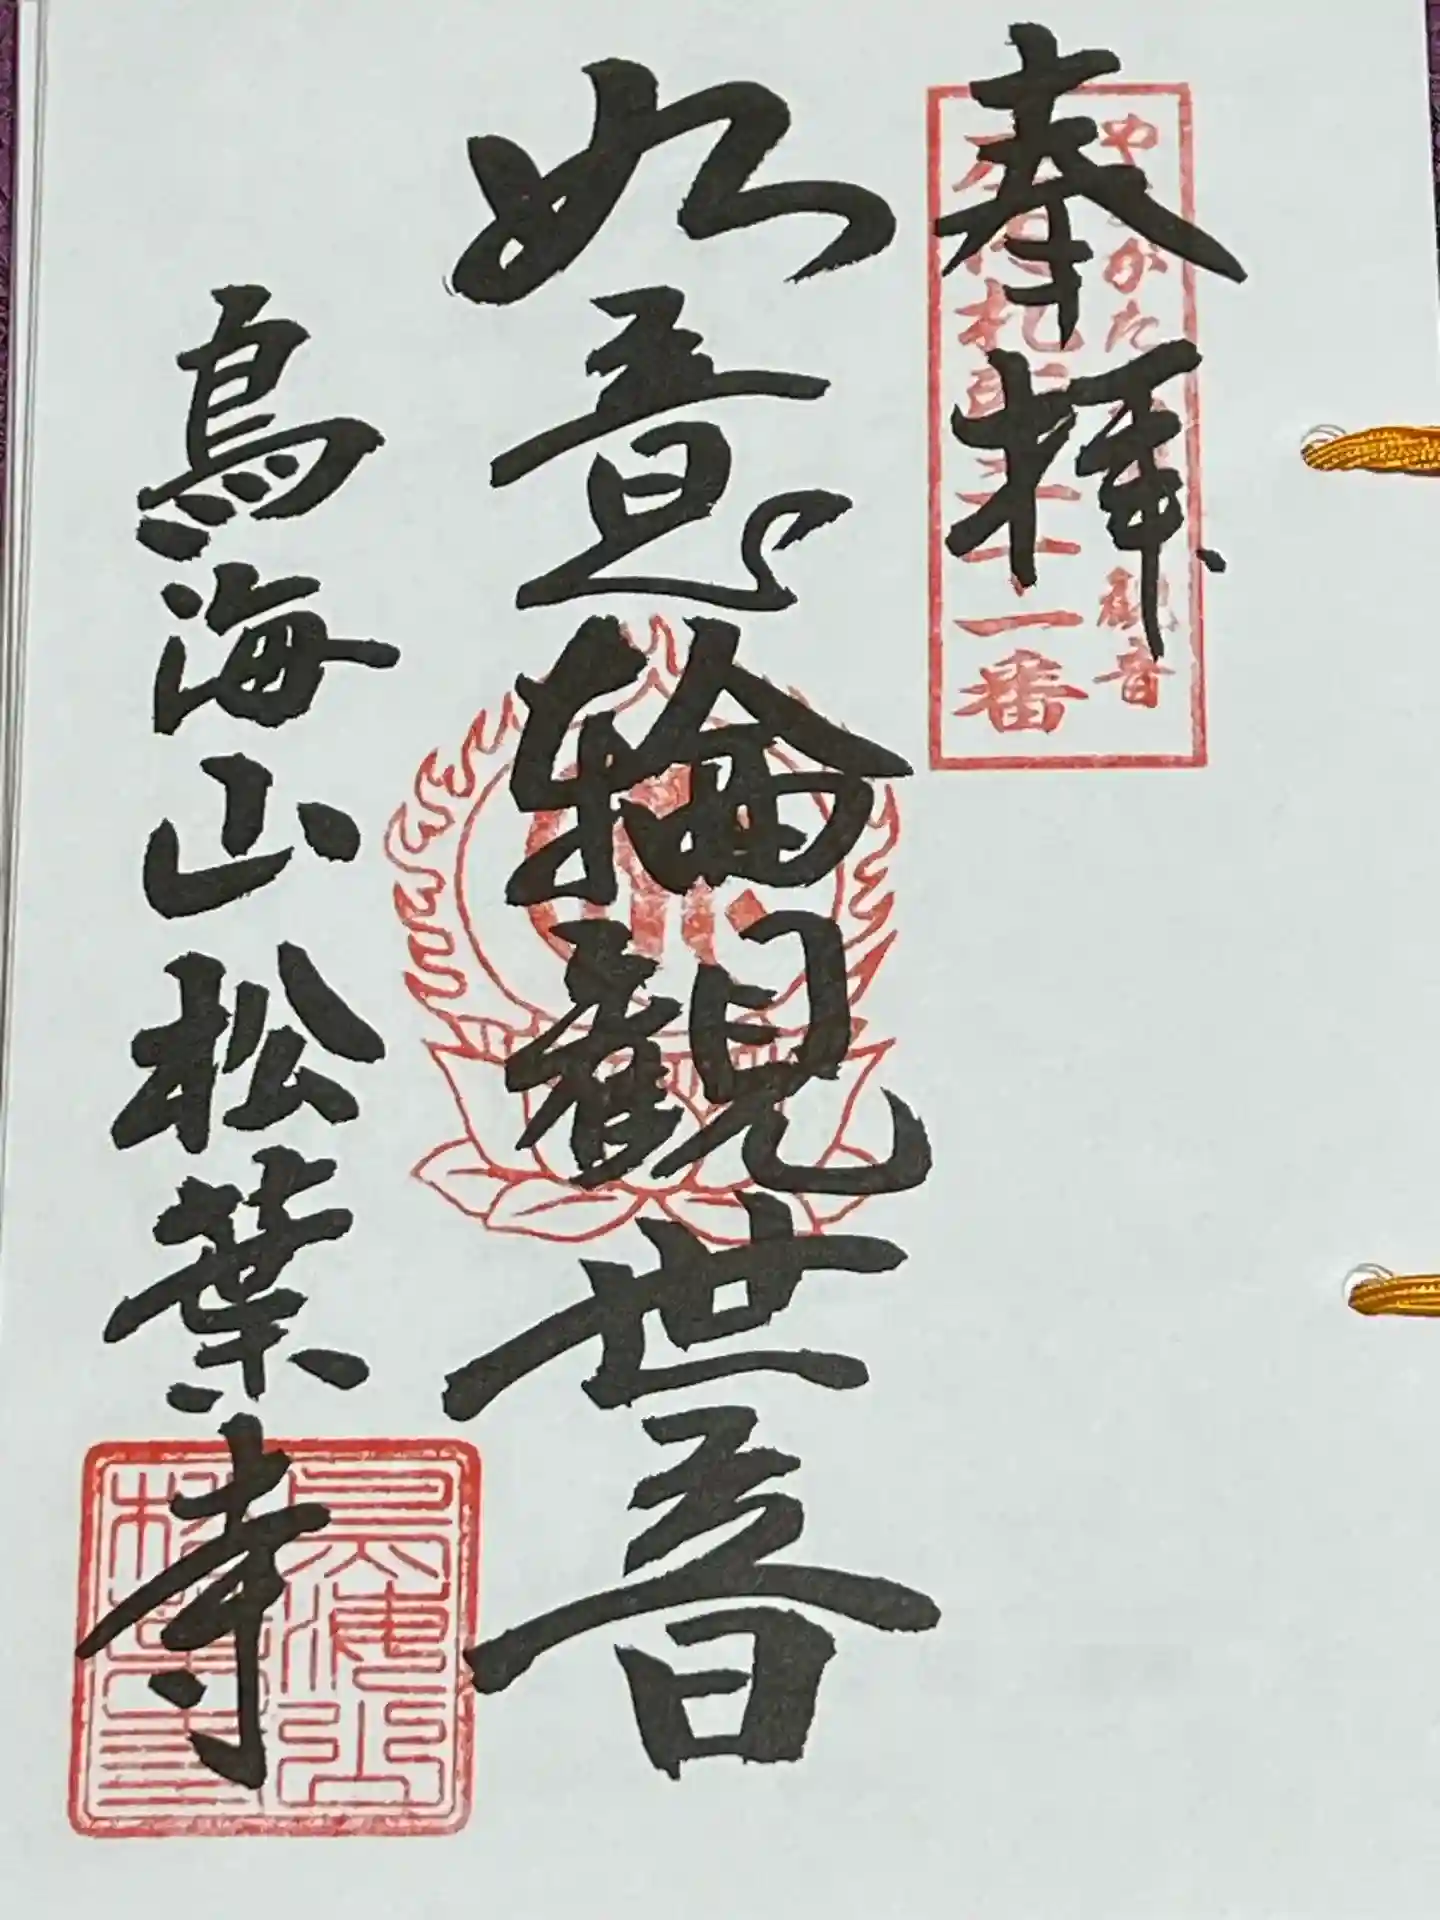 奉拝
やまがた 観音
札所 十一番
如意輪観世音
鳥海山松葉寺
鳥海山
松葉寺